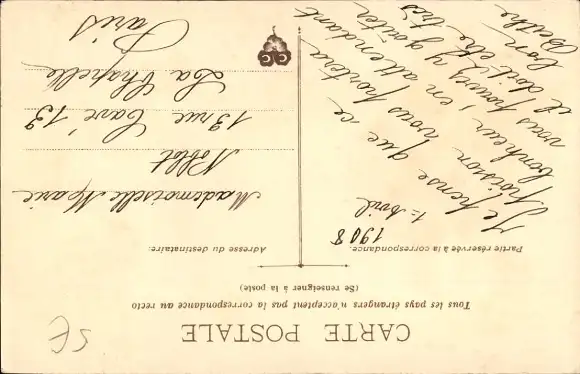 CARTE POSTALE
Tous les pays étrangers n'acceptent pas la correspondance au recto
(Se renseigner à la poste)
Partie réservée à la correspondance.
1908
1er Avril
Je pense que ce
poisson vous portera
bonheur, en attendant
vous pouvez y goûter
il doit être très
bon.
Berthe
Adresse du destinataire.
Mademoiselle Marie
Noblot
13 rue Cavé 13
La Chapelle
Paris
5E